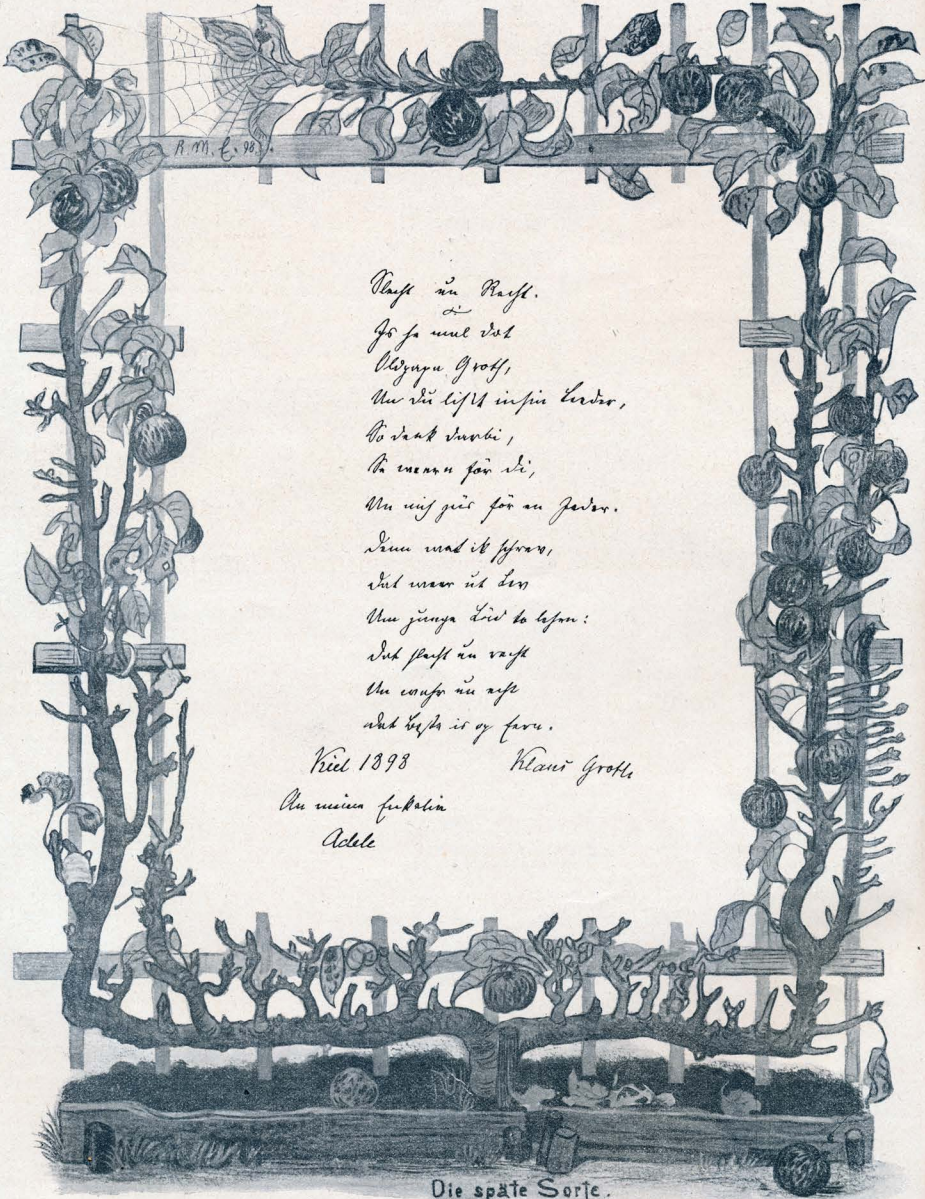 R. M. E. 98.
Slecht un Recht.
Is he mal dot
Oldpapa Groth,
Un du lihst in sin Lieder,
So denk darbi,
Se weern för di,
Un nich jüs för en Jeder.
Denn wat ik schrev,
dat weer ut Lev
Um junge Lüd to lehrn:
dat slecht un recht
Un wahr un echt
dat Beste is op Eern.
Kiel 1898 Klaus Groth
An meine Enkelin
Adele
Die späte Sorte.